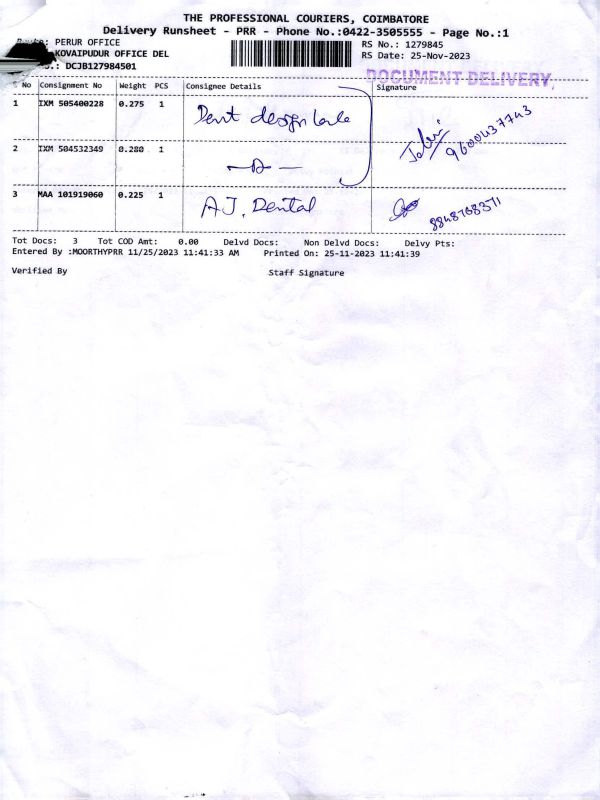 THE PROFESSIONAL COURIERS, COIMBATORE
Delivery Runsheet - PRR - Phone No.:0422-3505555 - Page No.:1
PERUR OFFICE RS No.: 1279845
KOVAIPUDUR OFFICE DEL RS Date: 25-Nov-2023
DCJB127984501
DOCUMENT DELIVERY
No Consignment No Weight PCS Consignee Details Signature
1 IXM 505400228 0.275 1 Dent design
9600437743
2 IXM 504532349 0.280 1
3 MAA 101919060 0.225 1 AJ. Dental
8848768371
Tot Docs: 3 Tot COD Amt: 0.00 Delvd Docs: Non Delvd Docs: Delvy Pts:
Entered By :MOORTHYPRR 11/25/2023 11:41:33 AM Printed On: 25-11-2023 11:41:39
Verified By Staff Signature